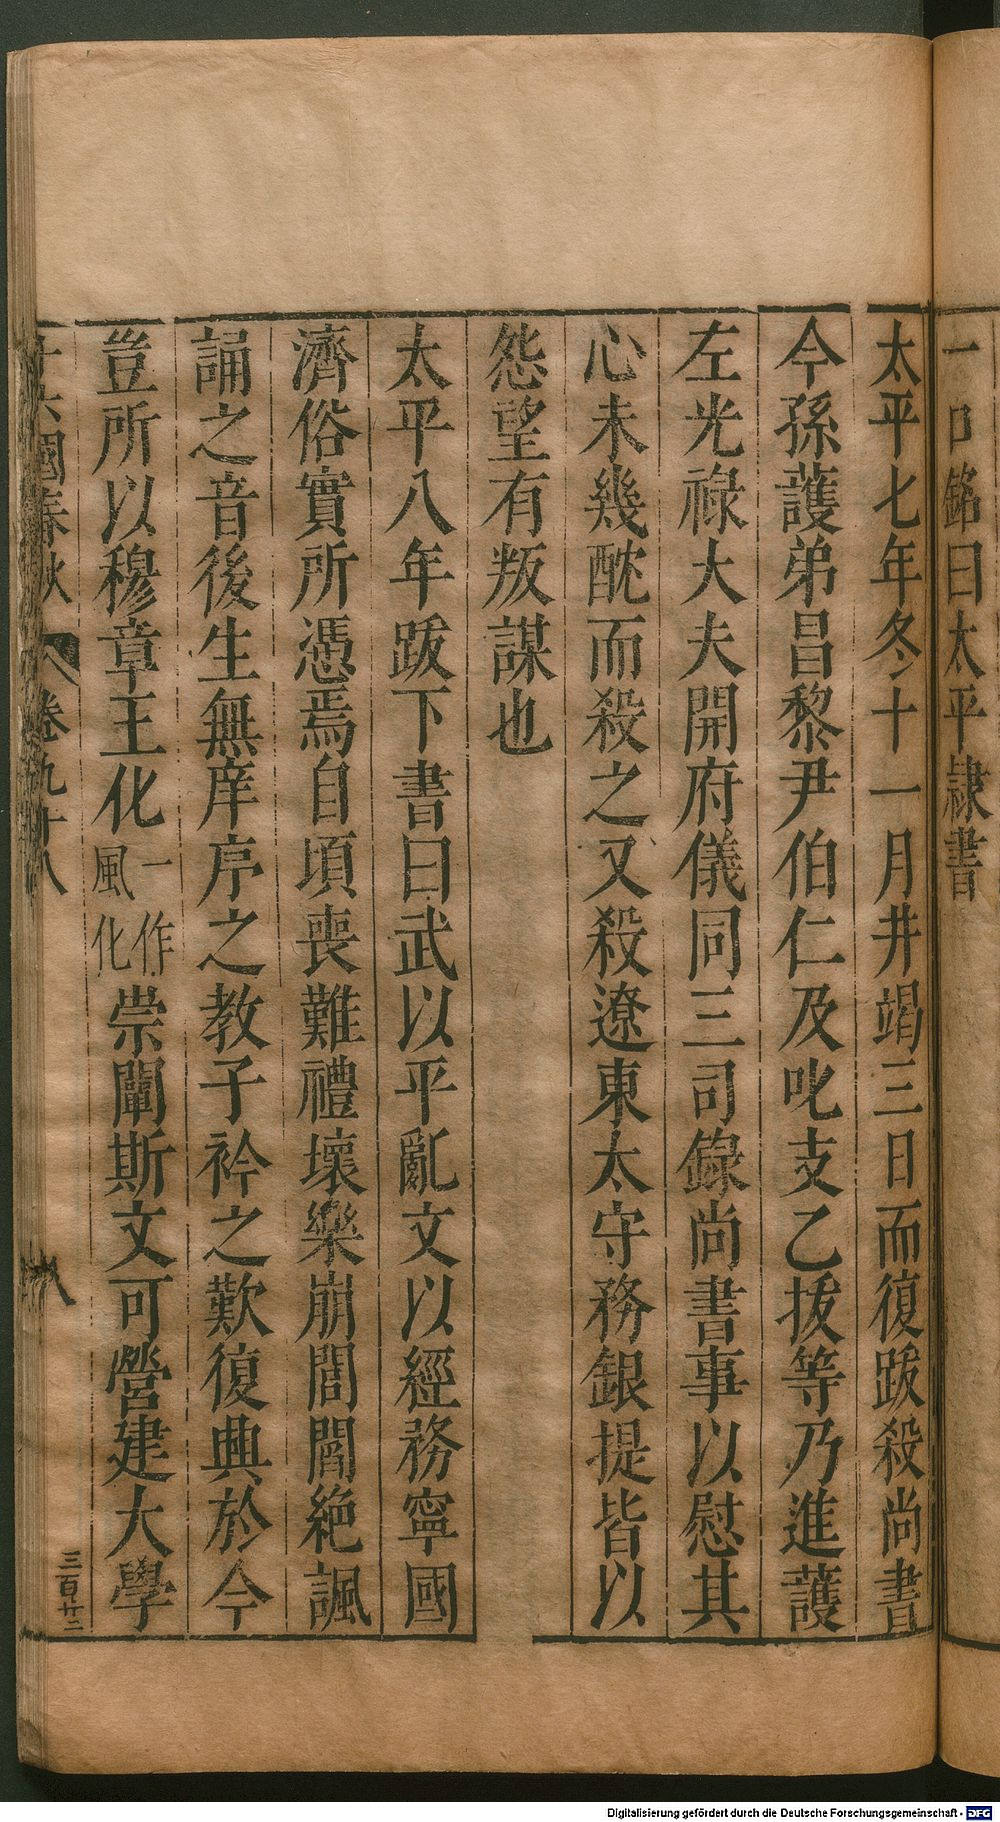 一卩銘曰太平隷書
太平七年冬十一月井竭三日而復跋殺尚書
今孫護弟昌黎尹伯仁及叱支乙拔等乃進護
左光祿大夫開府儀同三司錄尚書事以慰其
心未幾酖而殺之又殺遼東太守務銀提皆以
怨望有叛謀也
太平八年跋下書曰武以平亂文以經務寧國
濟俗實所憑焉自頃喪難禮壞樂崩閭閻絶諷
誦之音後生無庠序之教子衿之歎復興於今
豈所以穆章王化一作風化崇闡斯文可營建大學
十六國春秋 卷九十八 八
三百廿二
Digitalisierung gefördert durch die Deutsche Forschungsgemeinschaft - DFG